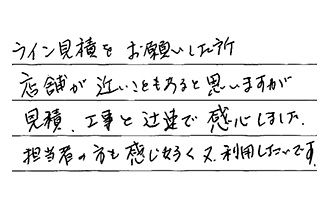 ライン見積をお願いした所
店舗が近いこともあると思いますが
見積、工事と辻速で感心しました.
担当者の方も感じ好く又、利用したいです.